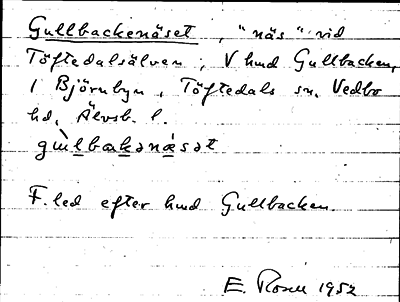 Gullbackenäset, "näs" vid
Töftedalsälven, V hmd Gullbacken,
i Björnbyn, Töftedals sn, Vedbo
hd, Älvsb. l.
gùlbakənǽsət
F.led efter hmd Gullbacken.
E. Rosen 1952